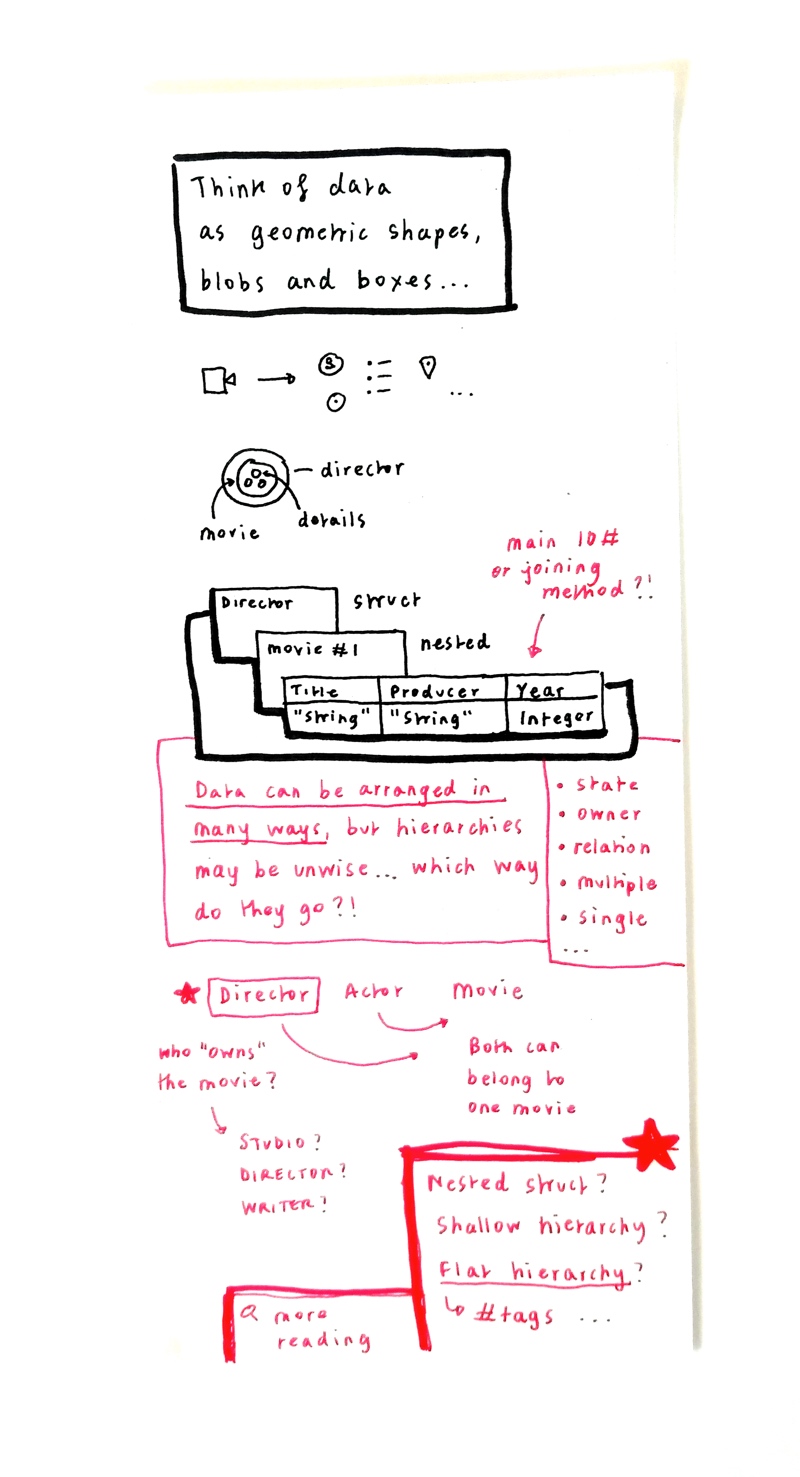 Think of data
as geometric shapes,
blobs and boxes...
...
director
movie
details
main ID#
or joining
method?!
Director
struct
movie #1
nested
Title Producer Year
"String" "String" Integer
Data can be arranged in
many ways, but hierarchies
may be unwise... which way
do they go?!
• state
• owner
• relation
• multiple
• single
...
Director Actor Movie
who "owns"
the movie?
Both can
belong to
one movie
STUDIO?
DIRECTOR?
WRITER?
Nested struct?
Shallow hierarchy?
Flat hierarchy?
↳ #tags ...
more
reading